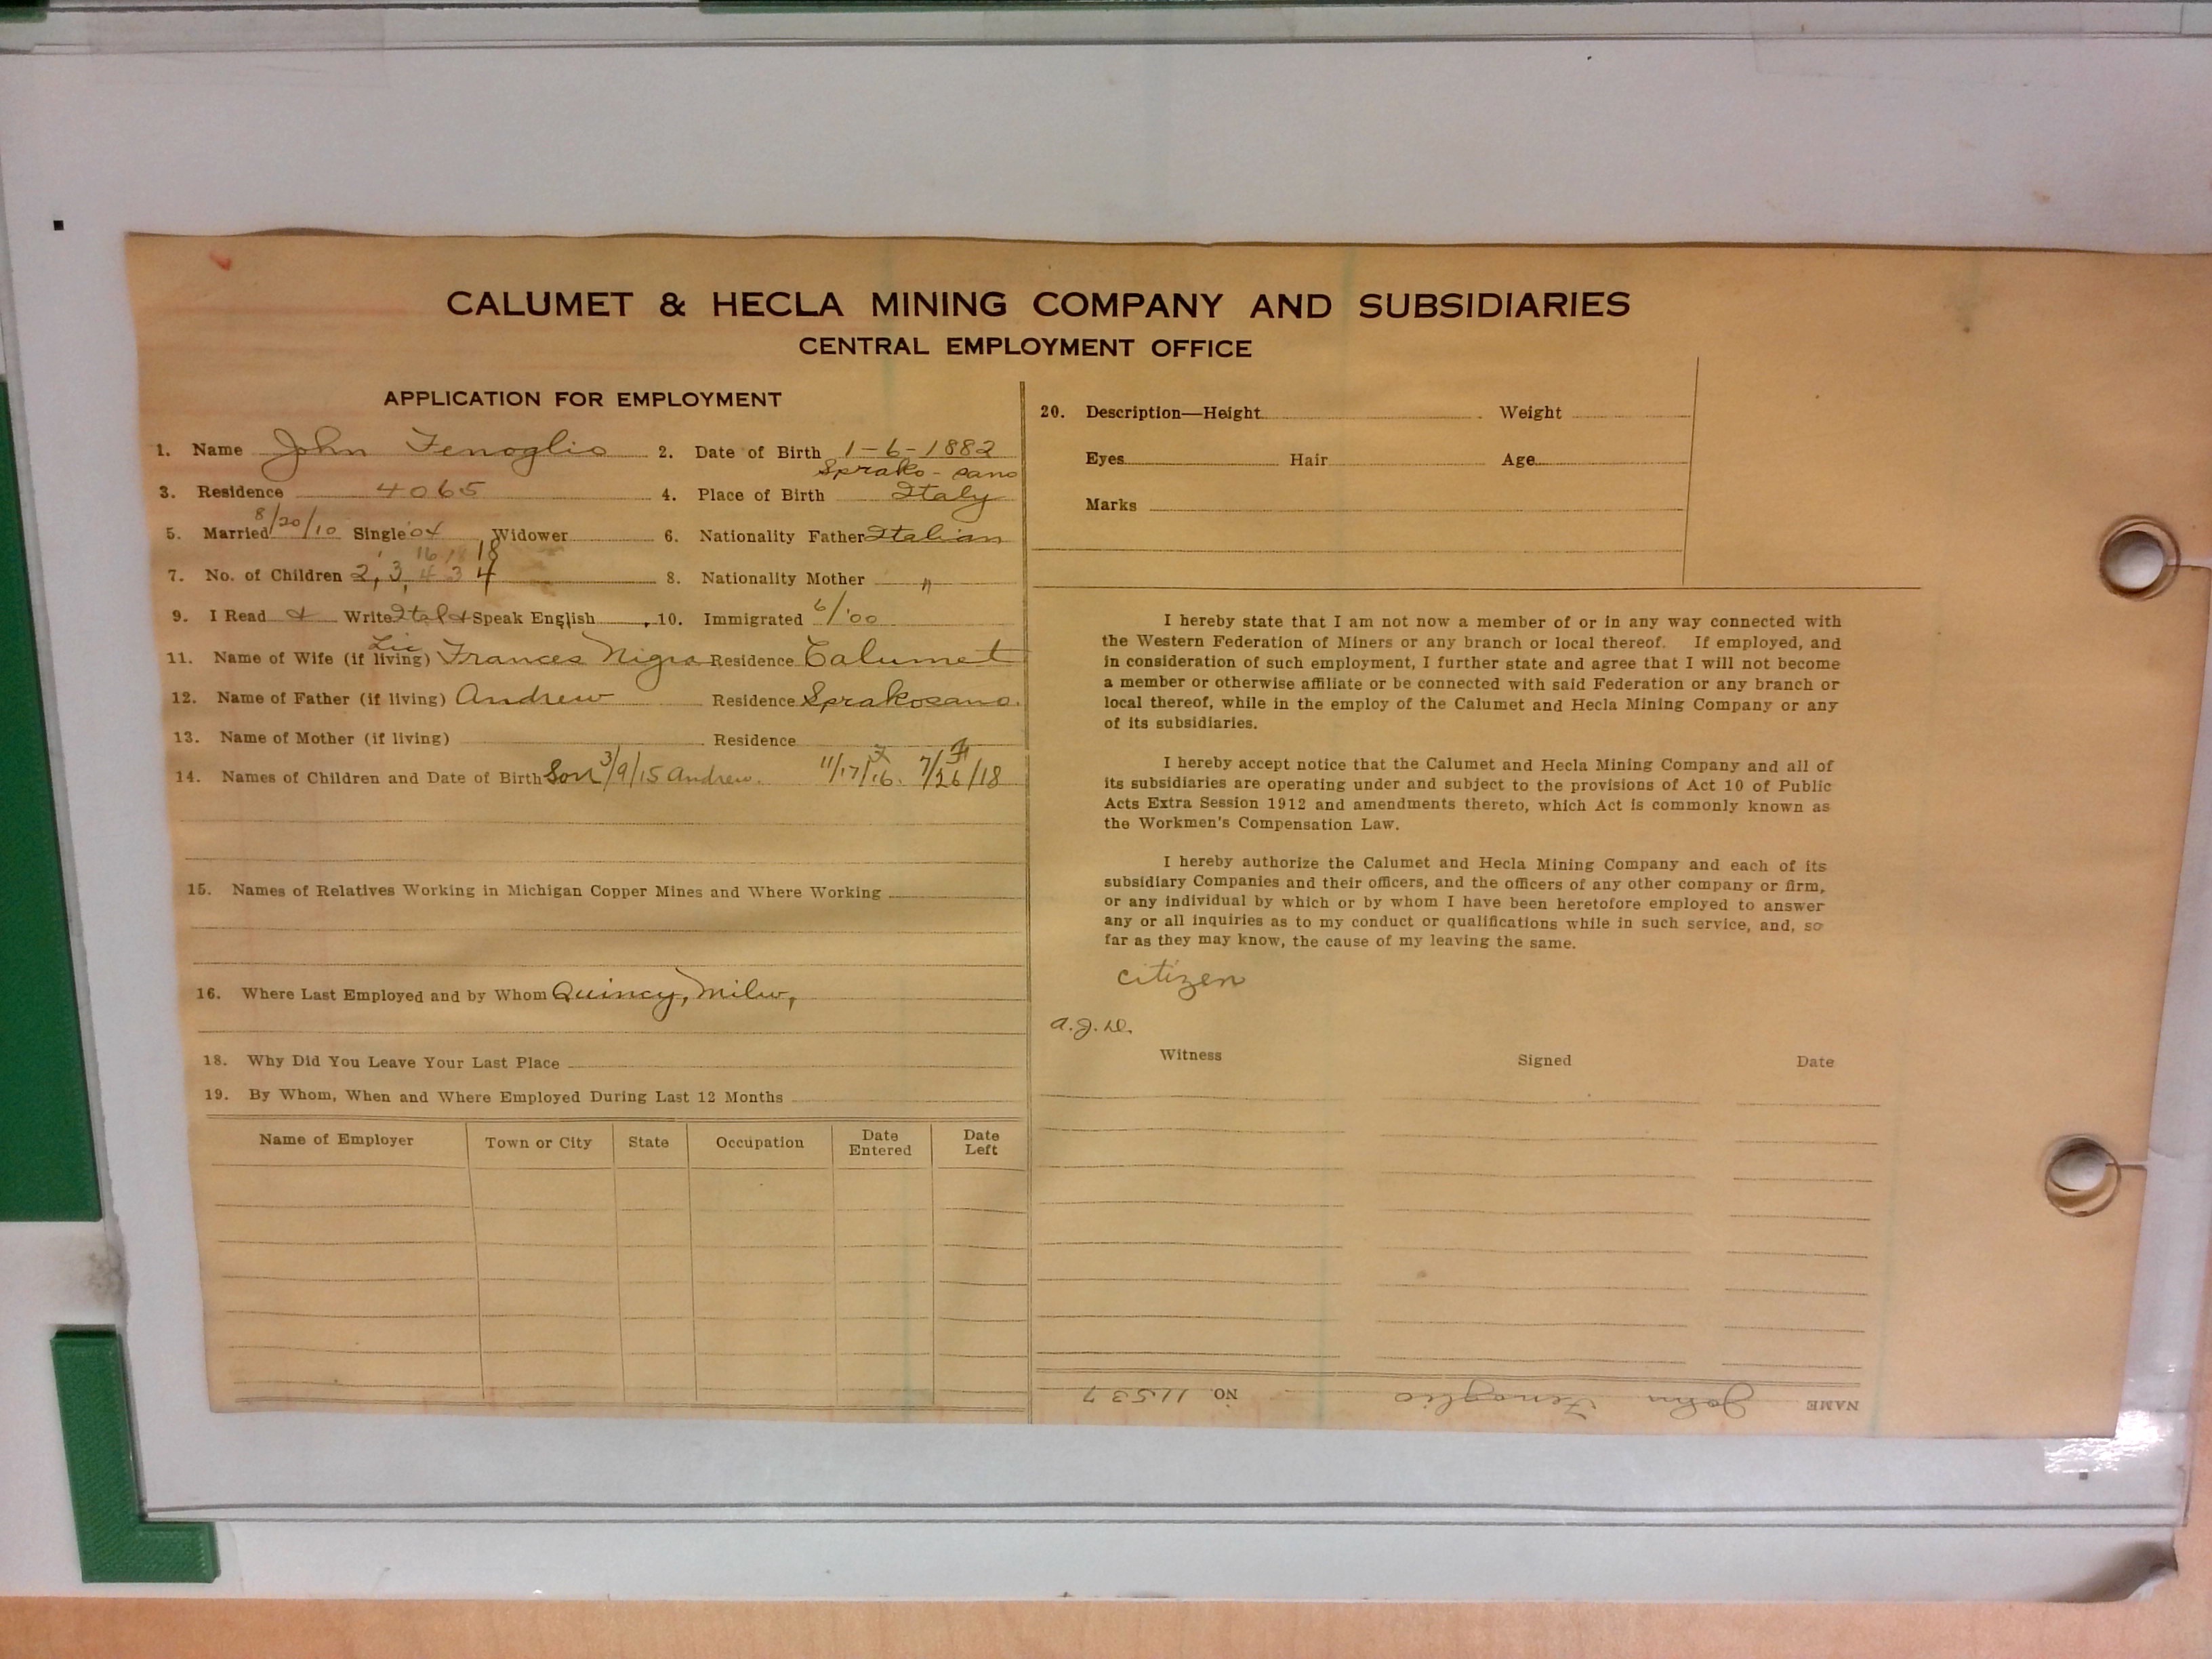 CALUMET & HECLA MINING COMPANY AND SUBSIDIARIES
CENTRAL EMPLOYMENT OFFICE
APPLICATION FOR EMPLOYMENT
1. Name John Fenoglio 2. Date of Birth 1-6-1882
Sprako-sano
3. Residence 4065 4. Place of Birth Italy
5. Married 8/20/10 Single 04 Widower 6. Nationality Father Italian
16 18 18
7. No. of Children 2, 3, 4 3 4 8. Nationality Mother "
9. I Read & Write Ital & Speak English 10. Immigrated 6/'00
11. Name of Wife (if living) Frances Nigra Residence Calumet
12. Name of Father (if living) Andrew Residence Sprakosano.
13. Name of Mother (if living) Residence
14. Names of Children and Date of Birth Son 3/9/15 Andrew. 11/17/16. 7/26/18
15. Names of Relatives Working in Michigan Copper Mines and Where Working
16. Where Last Employed and by Whom Quincy, Milw,
18. Why Did You Leave Your Last Place
19. By Whom, When and Where Employed During Last 12 Months
Name of Employer Town or City State Occupation Date Entered Date Left
20. Description—Height Weight
Eyes Hair Age
Marks
I hereby state that I am not now a member of or in any way connected with
the Western Federation of Miners or any branch or local thereof. If employed, and
in consideration of such employment, I further state and agree that I will not become
a member or otherwise affiliate or be connected with said Federation or any branch or
local thereof, while in the employ of the Calumet and Hecla Mining Company or any
of its subsidiaries.
I hereby accept notice that the Calumet and Hecla Mining Company and all of
its subsidiaries are operating under and subject to the provisions of Act 10 of Public
Acts Extra Session 1912 and amendments thereto, which Act is commonly known as
the Workmen's Compensation Law.
I hereby authorize the Calumet and Hecla Mining Company and each of its
subsidiary Companies and their officers, and the officers of any other company or firm,
or any individual by which or by whom I have been heretofore employed to answer
any or all inquiries as to my conduct or qualifications while in such service, and, so
far as they may know, the cause of my leaving the same.
citizen
a.J.D.
Witness Signed Date
NAME John Fenoglio NO. 11537